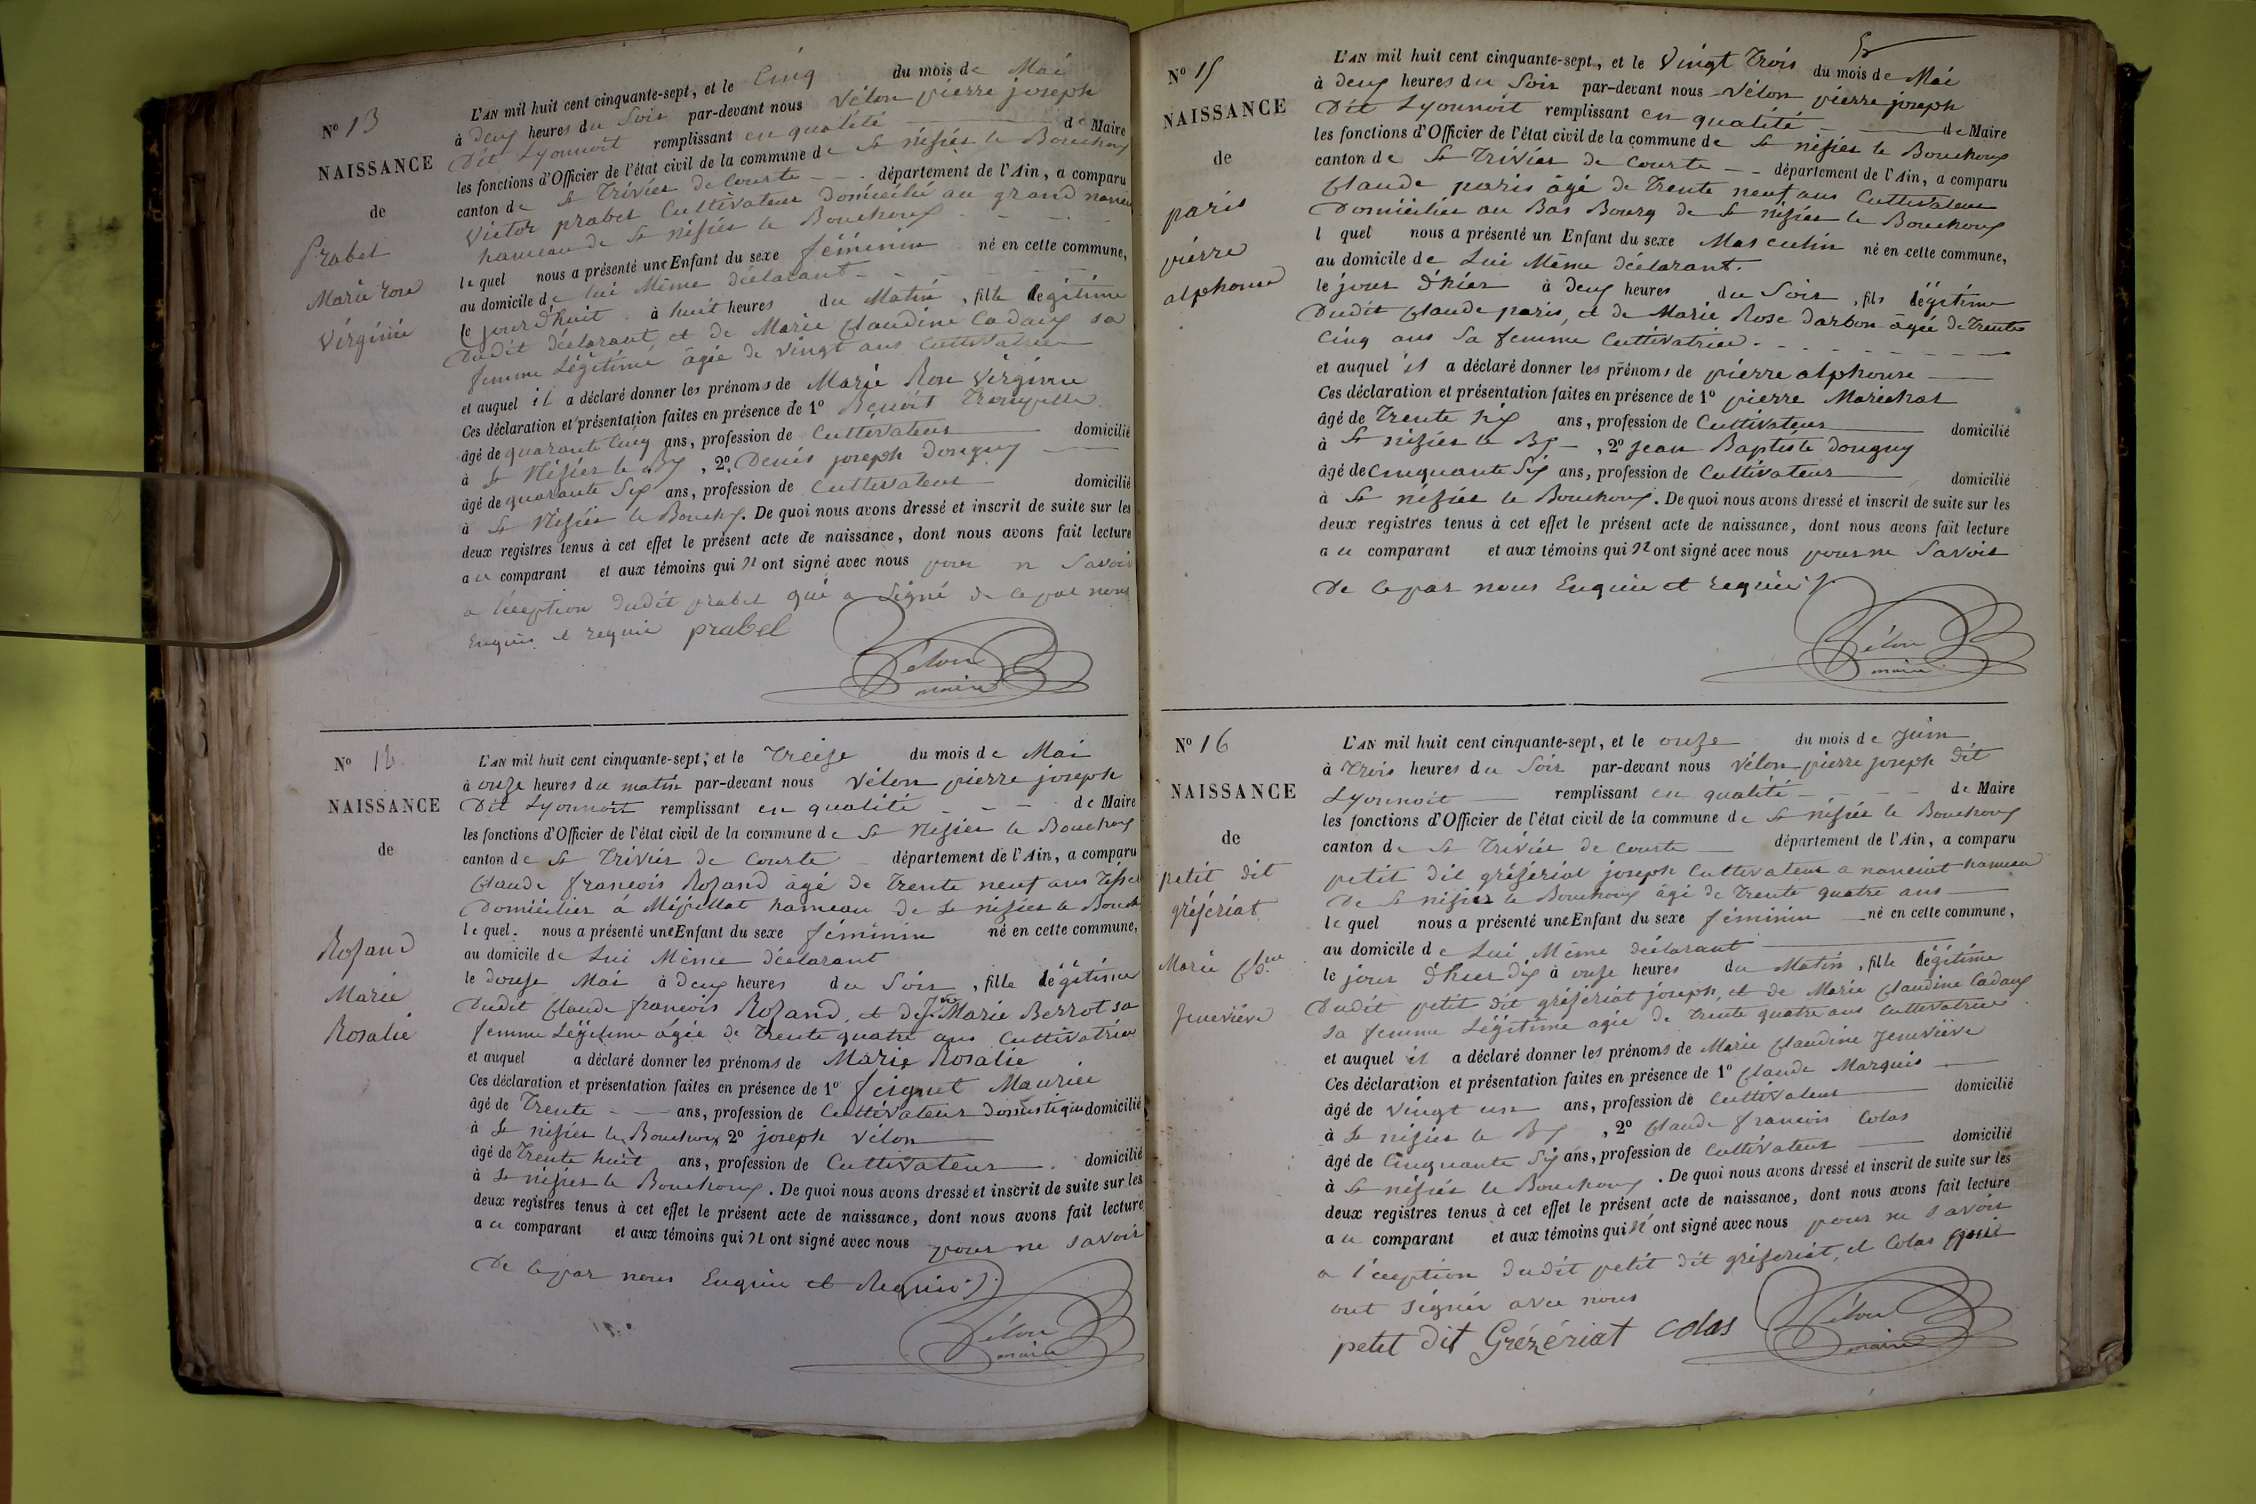 N° 13
NAISSANCE
de
Prabel
Marie rose
Virginie
L'AN mil huit cent cinquante-sept, et le Cinq du mois de Mai
à Deux heures du Soir par-devant nous Vélon pierre joseph
Dit Lyonnoit remplissant en qualité de Maire
les fonctions d'Officier de l'état civil de la commune de St nisier le Bouchoux
canton de St Trivier de Courte département de l'Ain, a comparu
Victor prabel Cultivateur domicilié au grand
hameau de St nisier le Bouchoux
lequel nous a présenté une Enfant du sexe féminin né en cette commune,
au domicile de lui Même déclarant
le jour d'huit à huit heures du Matin, fille légitime
Dudit déclarant, et de Marie Claudine Cadoux sa
femme Légitime âgée de vingt ans Cultivatrice
et auquel il a déclaré donner les prénoms de Marie Rose Virginie
Ces déclaration et présentation faites en présence de 1° Benoit
âgé de quarante Cinq ans, profession de Cultivateur domicilié
à St Nisier le Bx, 2° Denis joseph Donguy
âgé de quarante Six ans, profession de Cultivateur domicilié
à St Nisier le Bouchx. De quoi nous avons dressé et inscrit de suite sur les
deux registres tenus à cet effet le présent acte de naissance, dont nous avons fait lecture
a u comparant et aux témoins qui n ont signé avec nous pour n Savoir
a l'éception dudit prabel qui a Signé de ce par nous
Enquis et requis prabel
Vélon
maire
N° 14
NAISSANCE
de
Rozand
Marie
Rosalie
L'AN mil huit cent cinquante-sept, et le Treize du mois de Mai
à onze heures du matin par-devant nous Vélon pierre joseph
Dit Lyonnoit remplissant en qualité de Maire
les fonctions d'Officier de l'état civil de la commune de St Nisier le Bouchoux
canton de St Trivier de Courte département de l'Ain, a comparu
Claude francois Rozand âgé de Trente neuf ans
Domicilier á Mépillat hameau de St nisier le Bouch
lequel. nous a présenté une Enfant du sexe féminin né en cette commune,
au domicile de Lui Même déclarant
le douze Mai à deux heures du Soir, fille légitime
Dudit Claude francois Rozand, et de Marie Berrot sa
femme Légitime agée de Trente quatre ans Cultivatrice
et auquel a déclaré donner les prénoms de Marie Rosalie
Ces déclaration et présentation faites en présence de 1° feignet Maurice
âgé de Trente ans, profession de Cultivateur Domestique domicilié
à St nisier le Bouchoux 2° joseph Vélon
âgé de Trente huit ans, profession de Cultivateur domicilié
à St nisier le Bouchoux. De quoi nous avons dressé et inscrit de suite sur les
deux registres tenus à cet effet le présent acte de naissance, dont nous avons fait lecture
a u comparant et aux témoins qui n ont signé avec nous pour ne savoir
De ce par nous Enquis et Requis
Vélon
maire
N° 15
NAISSANCE
de
paris
pierre
alphonse
L'AN mil huit cent cinquante-sept, et le Vingt Trois du mois de Mai
à deux heures du Soir par-devant nous Vélon pierre joseph
Dit Lyonnoit remplissant en qualité de Maire
les fonctions d'Officier de l'état civil de la commune de St nisier le Bouchoux
canton de St Trivier de Courte département de l'Ain, a comparu
Claude paris âgé de Trente neuf ans Cultivateur
Domicilier au Bas Bourg de St nisier le Bouchoux
l quel nous a présenté un Enfant du sexe Masculin né en cette commune,
au domicile de Lui Même déclarant.
le jour d'hier à deux heures du Soir, fils légitime
Dudit Claude paris, et de Marie Rose darbon âgée de Trente
Cinq ans Sa femme Cultivatrice
et auquel il a déclaré donner les prénoms de pierre alphonse
Ces déclaration et présentation faites en présence de 1° pierre Maréchal
âgé de Trente Six ans, profession de Cultivateur domicilié
à St nisier le Bx, 2° jean Baptiste Donguy
âgé de Cinquante Six ans, profession de Cultivateur domicilié
à St nisier le Bouchoux. De quoi nous avons dressé et inscrit de suite sur les
deux registres tenus à cet effet le présent acte de naissance, dont nous avons fait lecture
a u comparant et aux témoins qui n ont signé avec nous pour ne Savoir
De ce par nous Enquis et requis
Vélon
maire
N° 16
NAISSANCE
de
petit dit
grézériat
Marie Cl.ne
jeneviève
L'AN mil huit cent cinquante-sept, et le onze du mois de juin
à Trois heures du Soir par-devant nous Vélon pierre joseph dit
Lyonnoit remplissant en qualité de Maire
les fonctions d'Officier de l'état civil de la commune de St nisier le Bouchoux
canton de St Trivier de Courte département de l'Ain, a comparu
petit dit grézériat joseph Cultivateur a hameau
De St nisier le Bouchoux âgé de Trente quatre ans
lequel nous a présenté une Enfant du sexe féminin né en cette commune,
au domicile de Lui Même déclarant
le jour d'hier dix à onze heures du Matin, fille légitime
Dudit petit dit grézériat joseph, et de Marie Claudine Cadoux
sa femme Légitime agée de Trente quatre ans Cultivatrice
et auquel il a déclaré donner les prénoms de Marie Claudine jeneviève
Ces déclaration et présentation faites en présence de 1° Claude Marquis
âgé de Vingt un ans, profession de Cultivateur domicilié
à St nisier le Bx, 2° Claude francois Colas
âgé de Cinquante Six ans, profession de Cultivateur domicilié
à St nisier le Bouchoux. De quoi nous avons dressé et inscrit de suite sur les
deux registres tenus à cet effet le présent acte de naissance, dont nous avons fait lecture
a u comparant et aux témoins qui n' ont signé avec nous pour ne savoir
a l'éception dudit petit dit grézériat, et Colas qui
ont signér avec nous
petit dit Grézériat colas
Vélon
maire